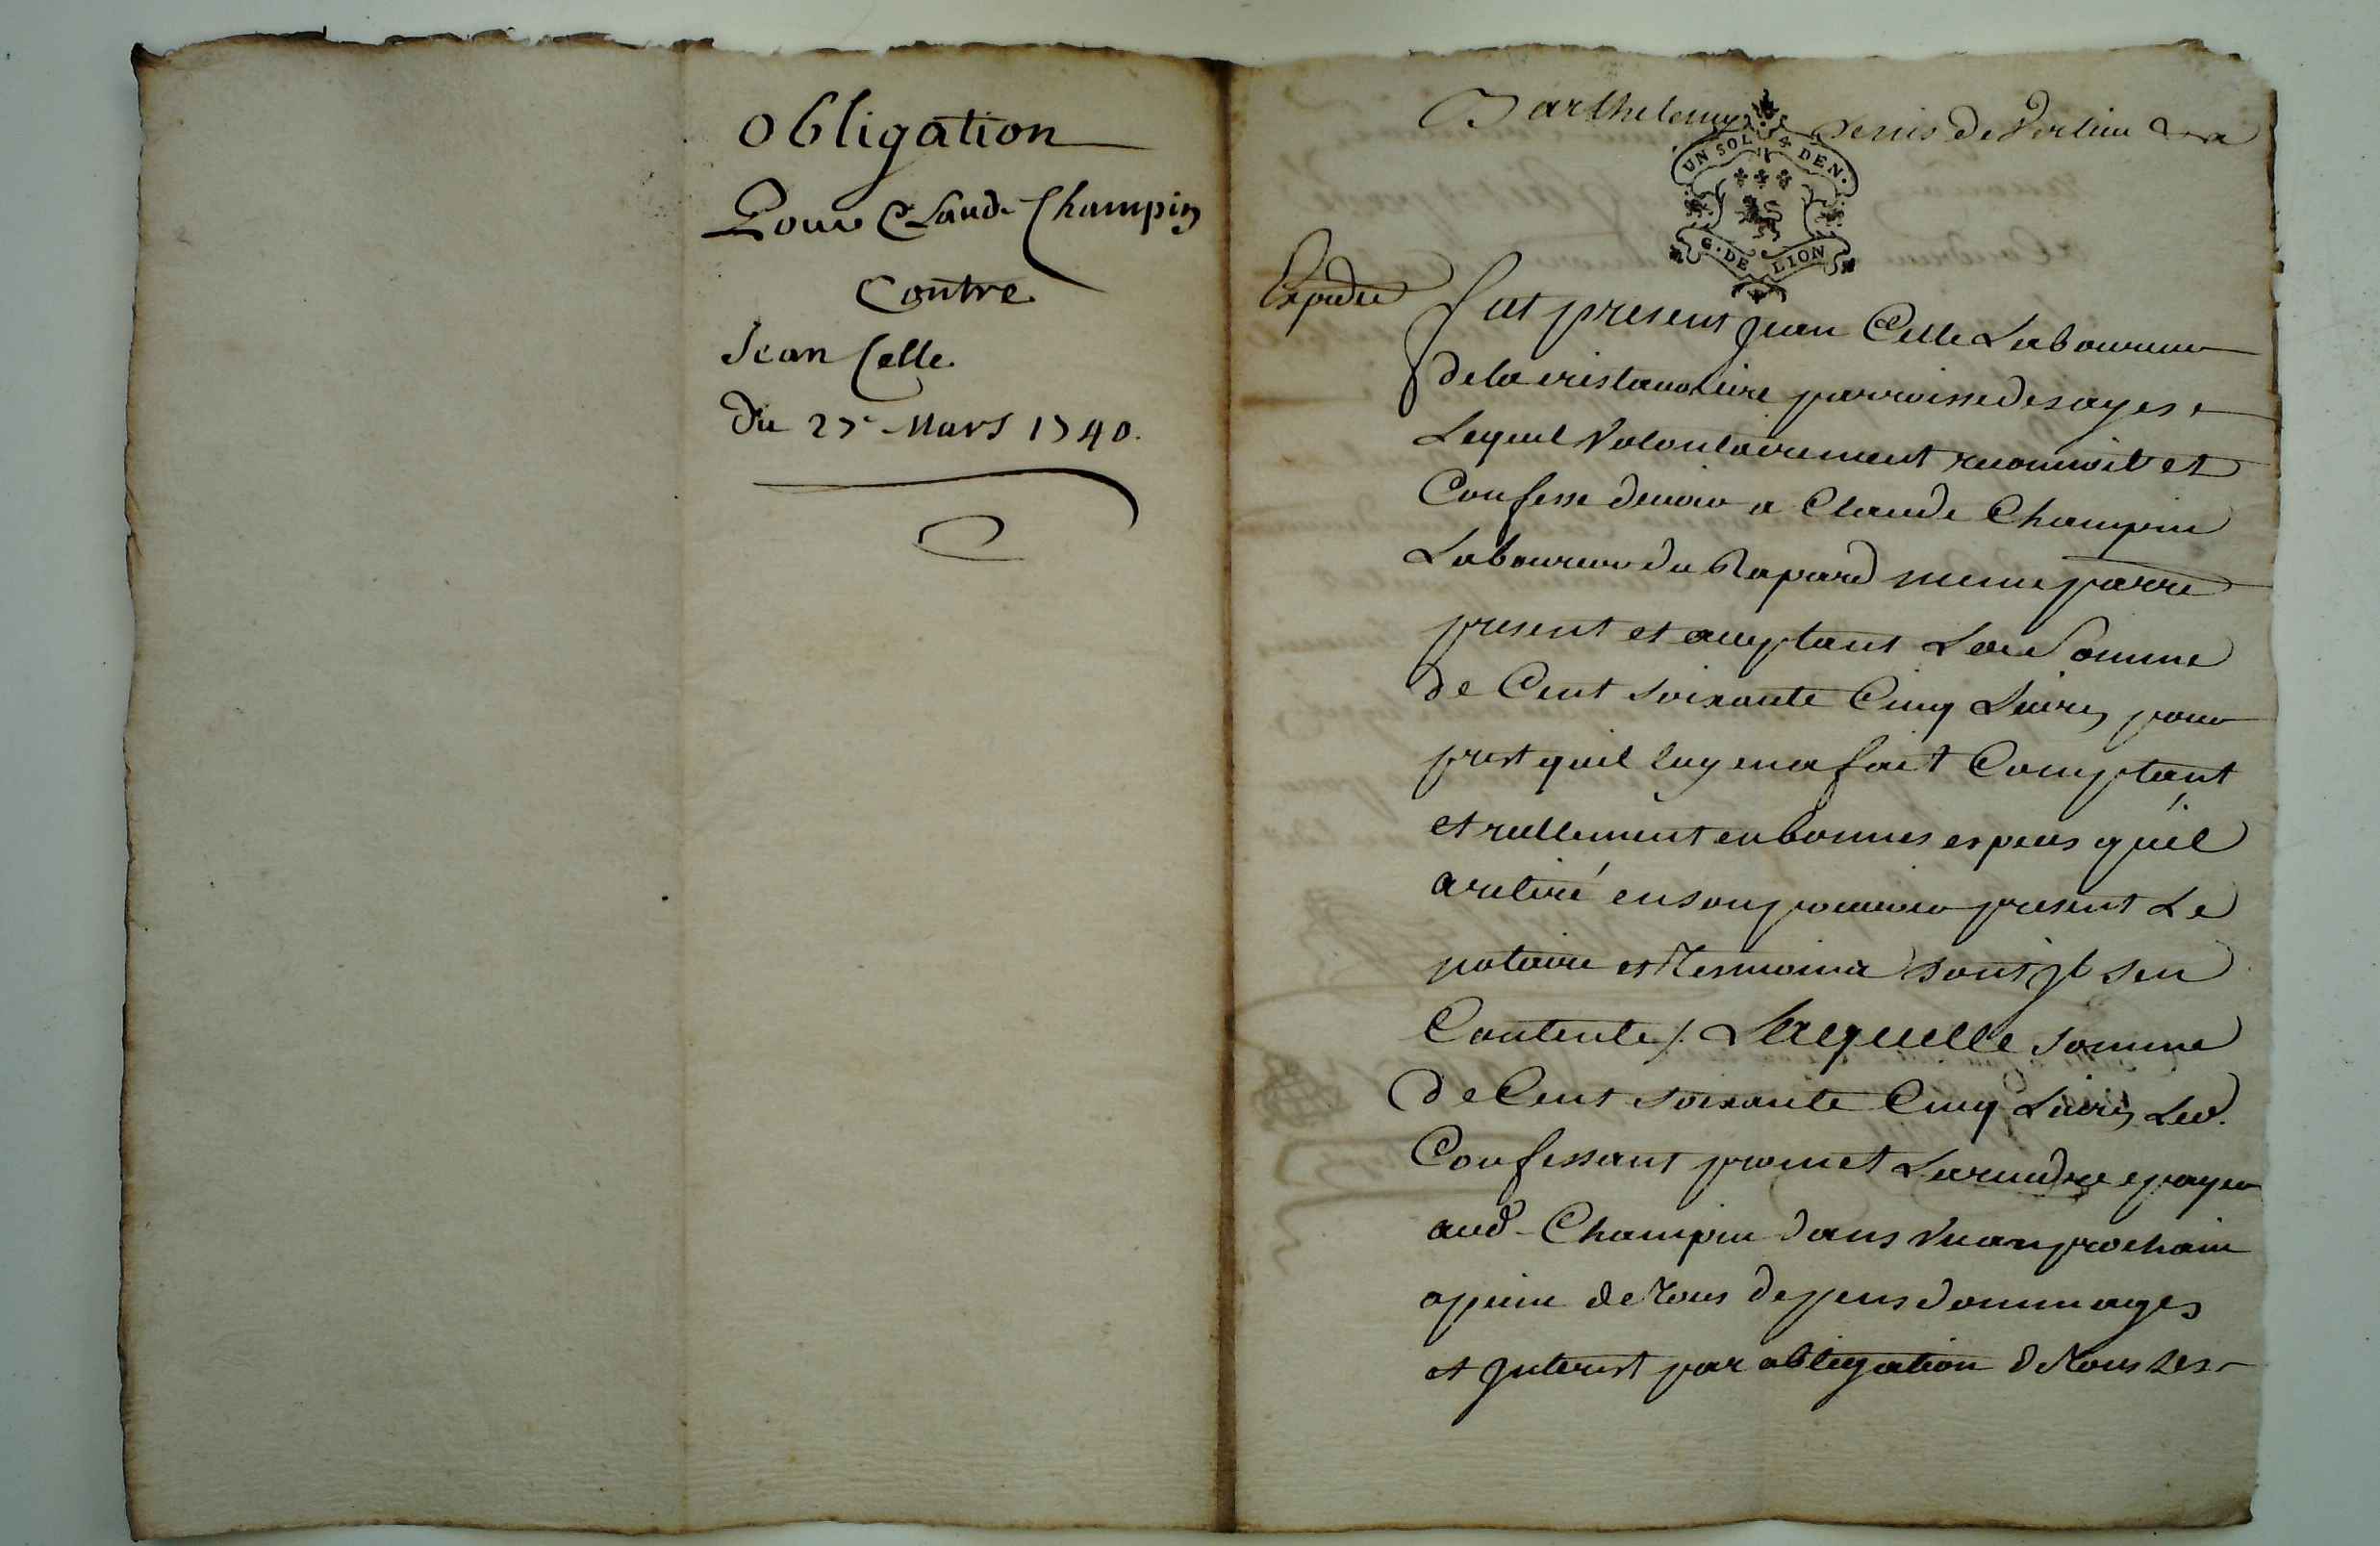 Obligation
Pour Claude Champin
Contre
Jean Celle
Du 27e Mars 1740.
Barthelemy Denis de
UN SOL 4 DEN.
G. DE LION
Expediée
fut present Jean Celle Laboureur
de la parroisse des ayes
Lequel Volontairement reconnoit et
Confesse devoir a Claude Champin
Laboureur du Rapard meme parre
present et acceptant La Somme
de Cent soixante Cinq Livres pour
prest quil luy en a fait Comptant
et reellement en bonnes especes quil
a retiré en son pouvoir present Le
notaire et Tesmoins dont Jl sen
Contente /. Laquelle somme
de Cent soixante Cinq Livres Led.
Confessant promet La rendre e payer
aud. Champin dans Vn an prochain
a peine de Tous depens dommages
et Jnterest par obligation de Tous ses